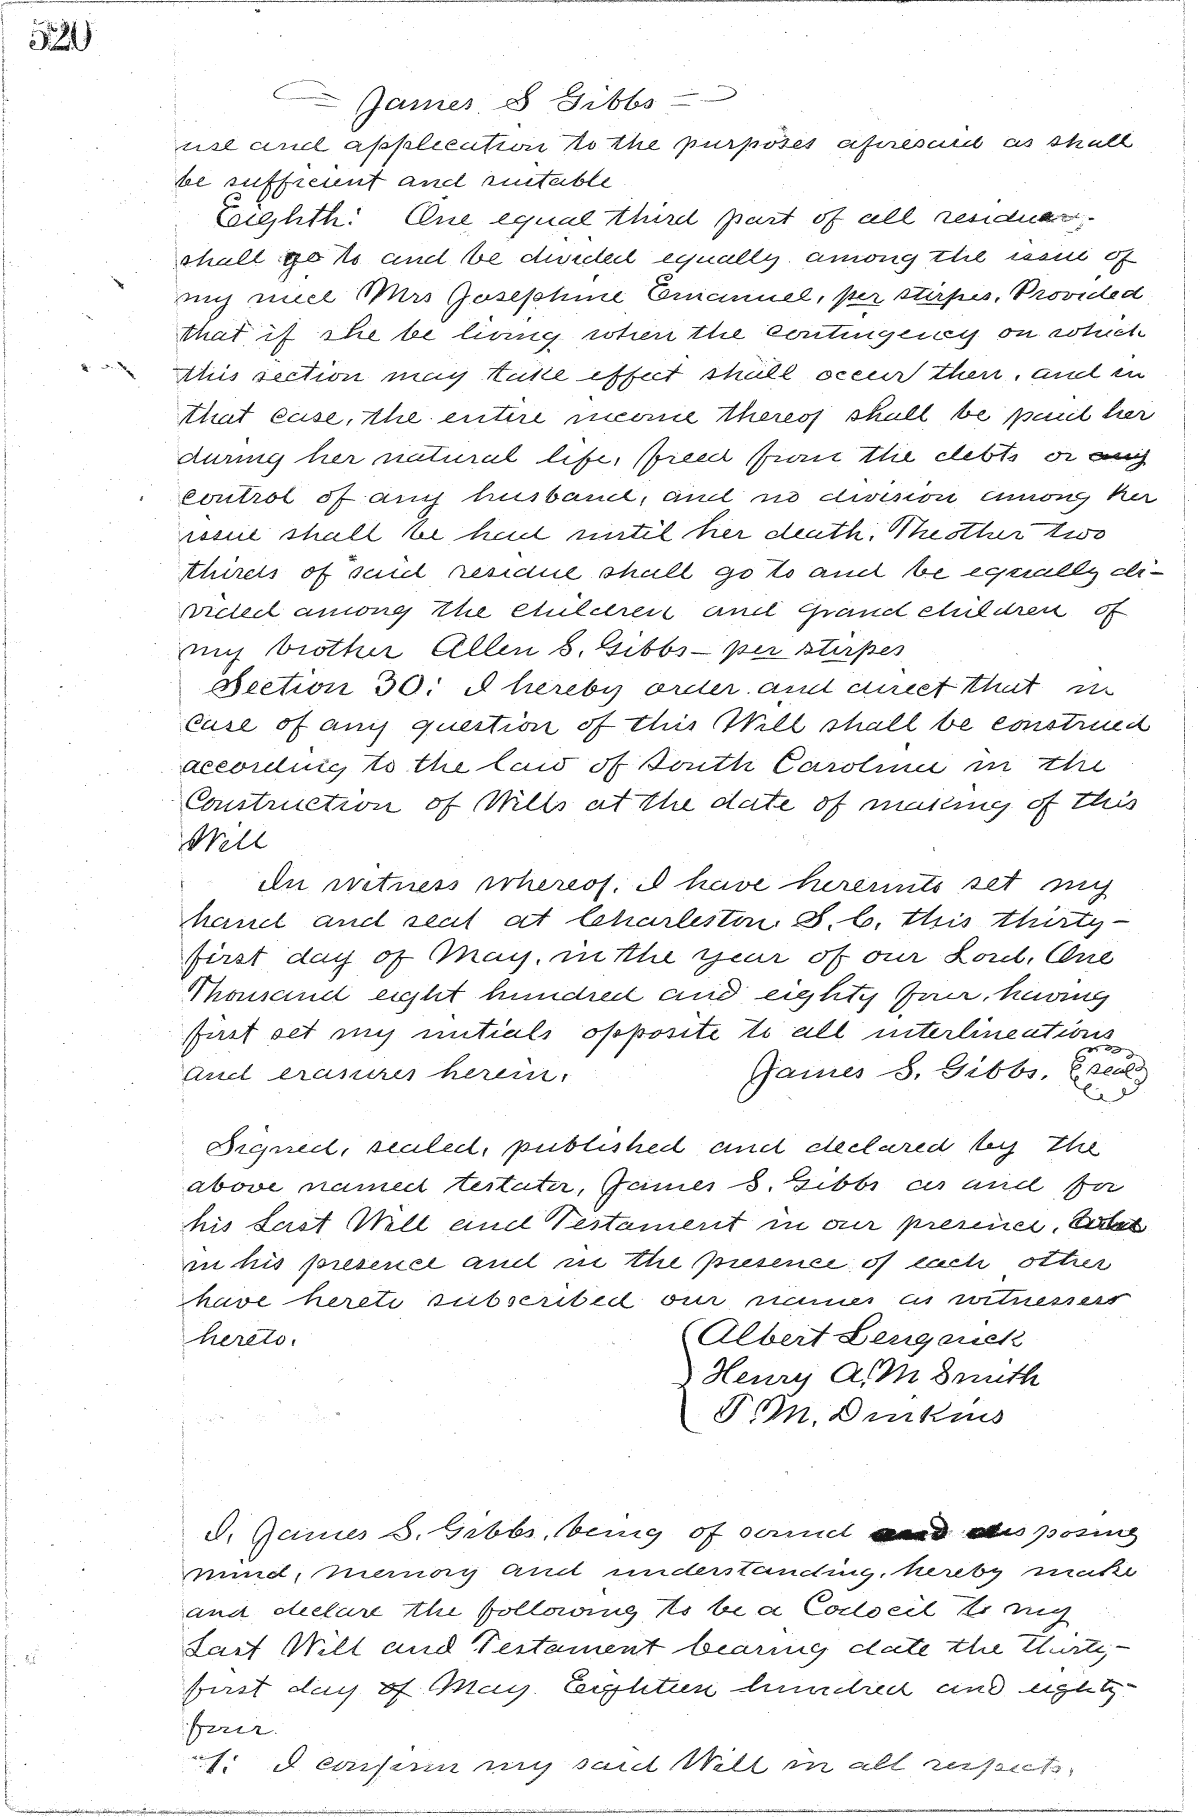 520
James S Gibbs
use and application to the purposes aforesaid as shall
be sufficient and suitable
Eighth: One equal third part of all residue
shall go to and be divided equally among the issue of
my niece Mrs Josephine Emanuel, per stirpes, Provided
that if she be living when the contingency on which
this section may take effect shall occur then, and in
that case, the entire income thereof shall be paid her
during her natural life, freed from the debts or any
control of any husband, and no division among her
issue shall be had until her death. The other two
thirds of said residue shall go to and be equally di-
vided among the children and grand children of
my brother Allen S. Gibbs - per stirpes
Section 30: I hereby order and direct that in
case of any question of this Will shall be construed
according to the law of South Carolina in the
Construction of Wills at the date of making of this
Will
In witness whereof, I have hereunto set my
hand and seal at Charleston, S. C. this thirty-
first day of May, in the year of our Lord, One
Thousand eight hundred and eighty four, having
first set my initials opposite to all interlineations
and erasures herein.
James S. Gibbs. seal
Signed, sealed, published and declared by the
above named testator, James S. Gibbs as and for
his Last Will and Testament in our presence,
in his presence and in the presence of each other
have hereto subscribed our names as witnesses
hereto.
Albert Lengnick
Henry A. M Smith
T. M. Dinkins
I, James S. Gibbs, being of sound and disposing
mind, memory and understanding, hereby make
and declare the following to be a Codocil to my
Last Will and Testament bearing date the thirty-
first day of May Eighteen hundred and eighty-
four.
1: I confirm my said Will in all respects,